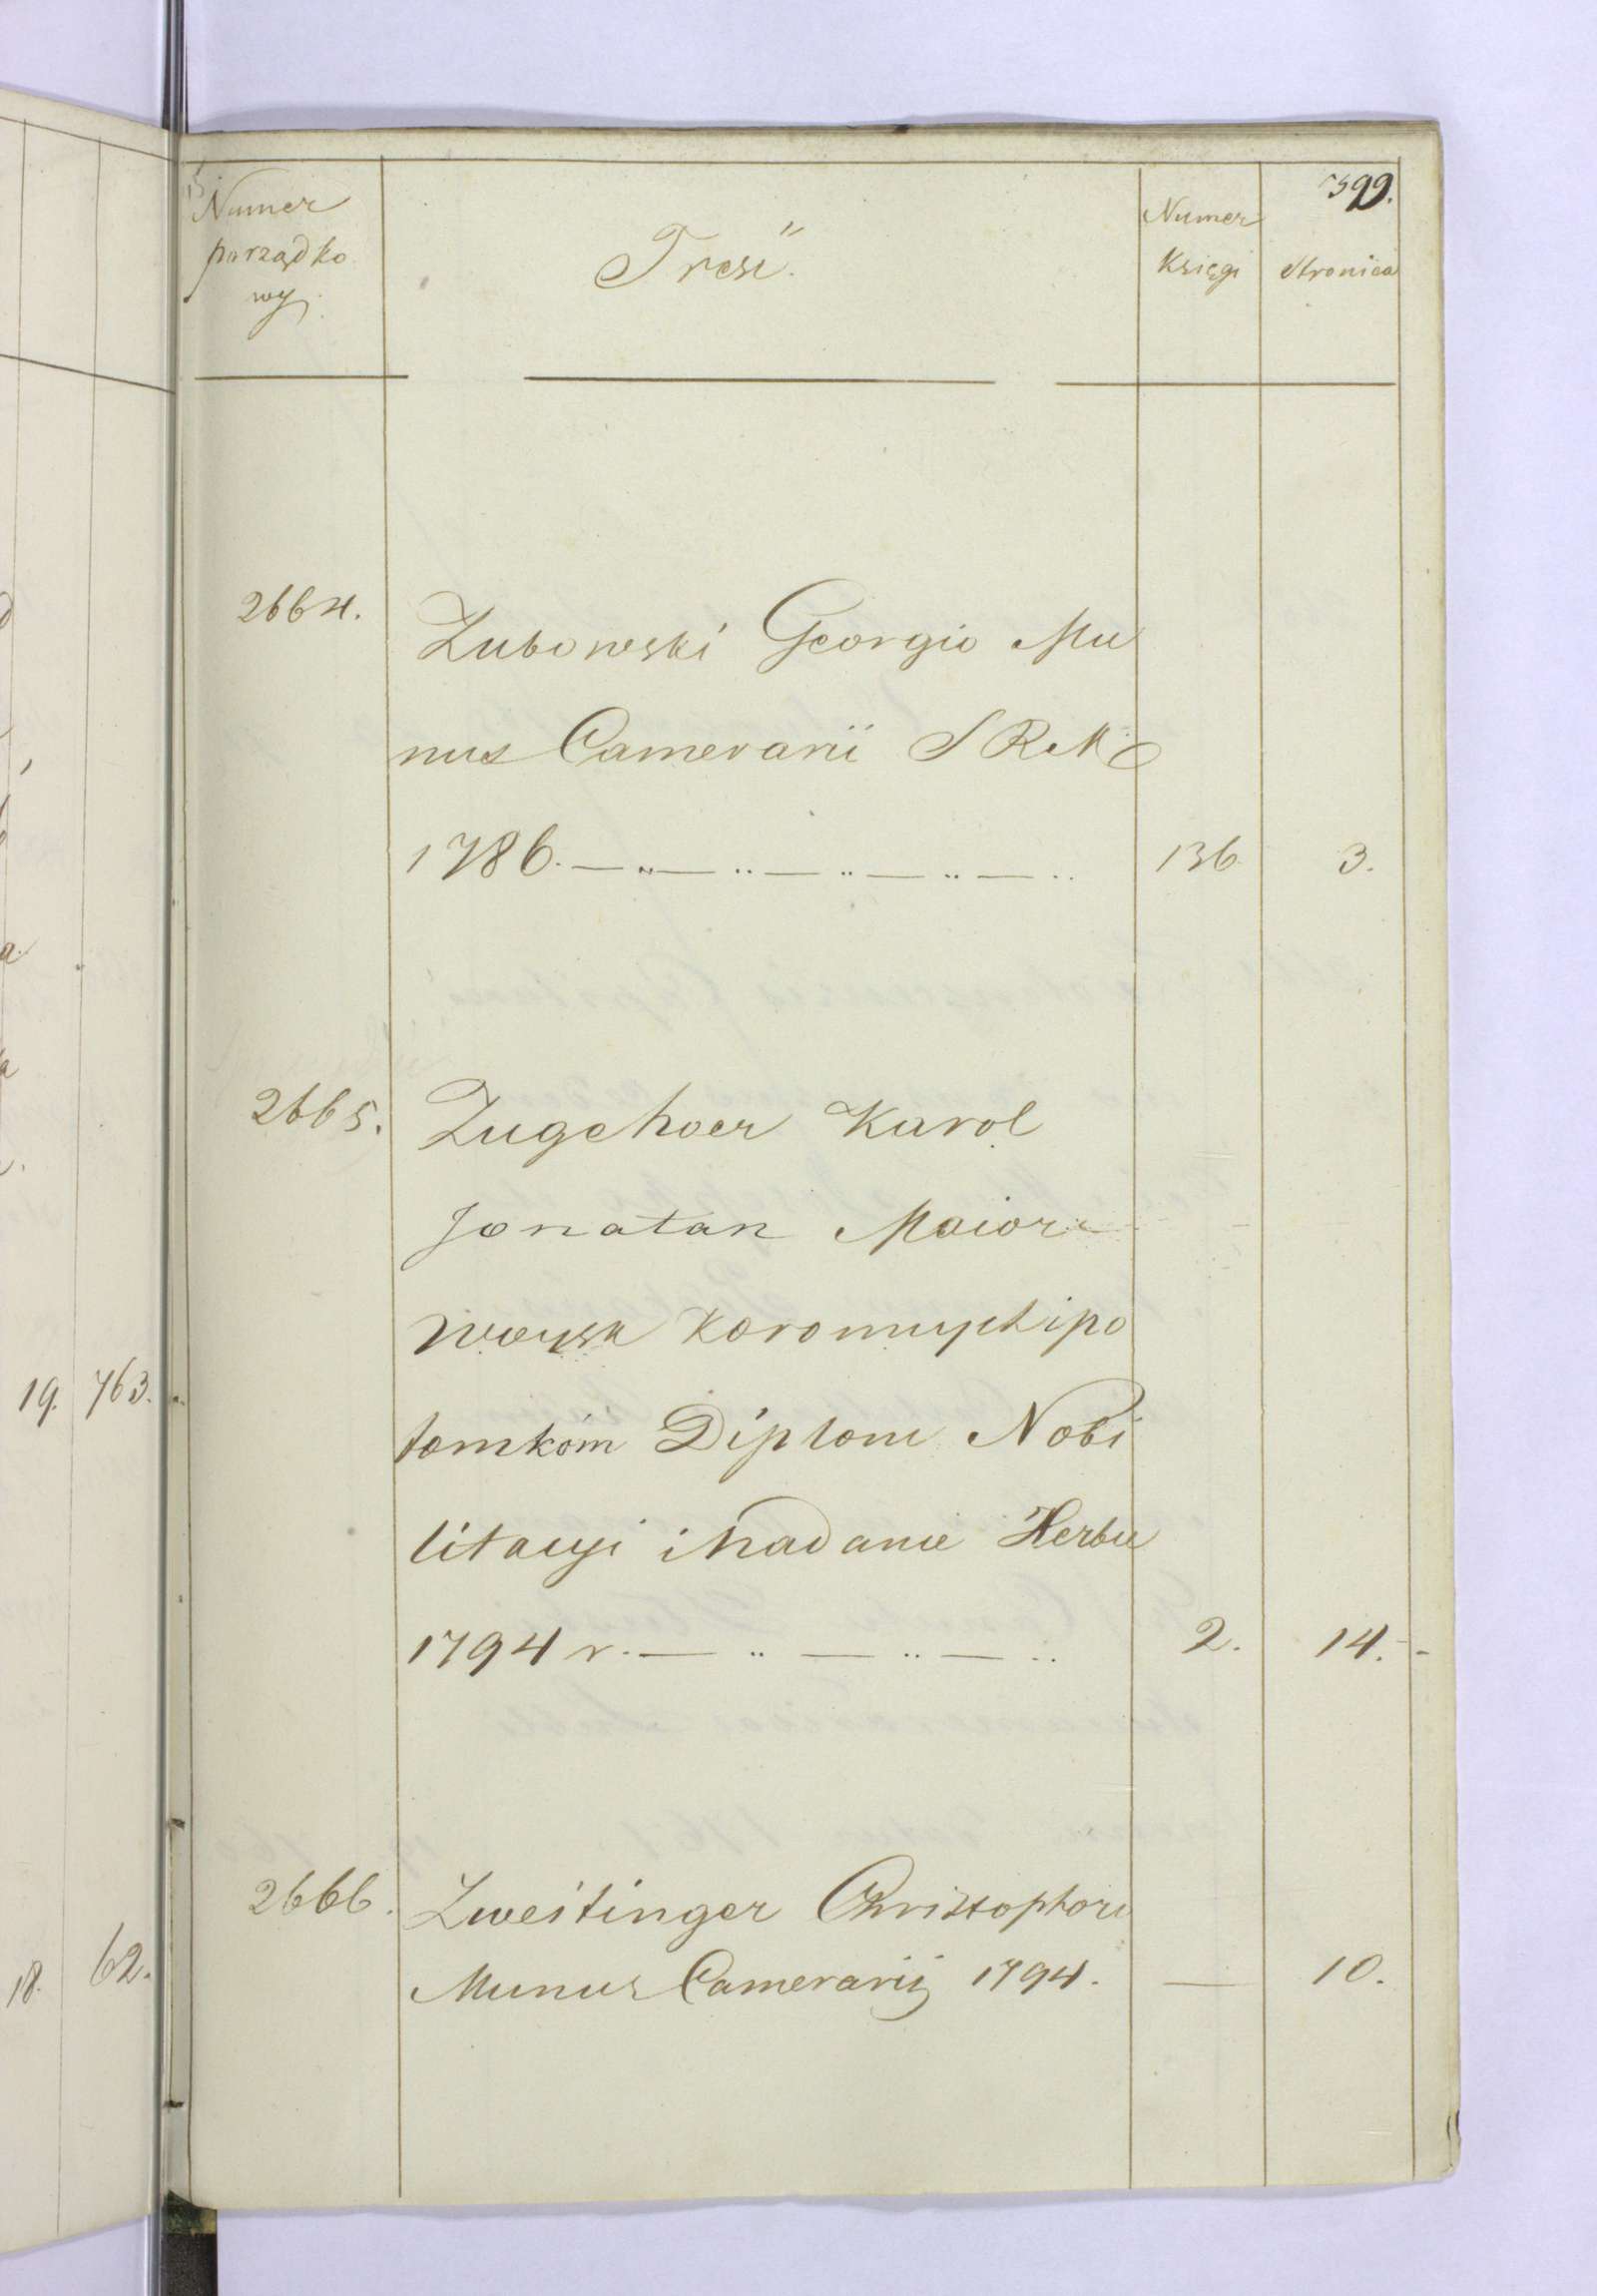 599.
Numer
porządko
wy.
Treść.
Numer
Księgi
Stronica
2664.
Zubowski Georgio Mu
nus Camerarii S R M
1786. — „ — .. — .. — .. — ..
136
3.
2665.
Zugehoer Karol
Jonatan Maior
Woysk Koronnych i po
tomkóm Diplom Nobi
litacyi i Nadanie Herbu
1794 r. — .. — .. — ..
2.
14.
2666.
Zweitinger Christophoro
Munus Camerarij 1794.
—
10.
19. 763.
18. 62.